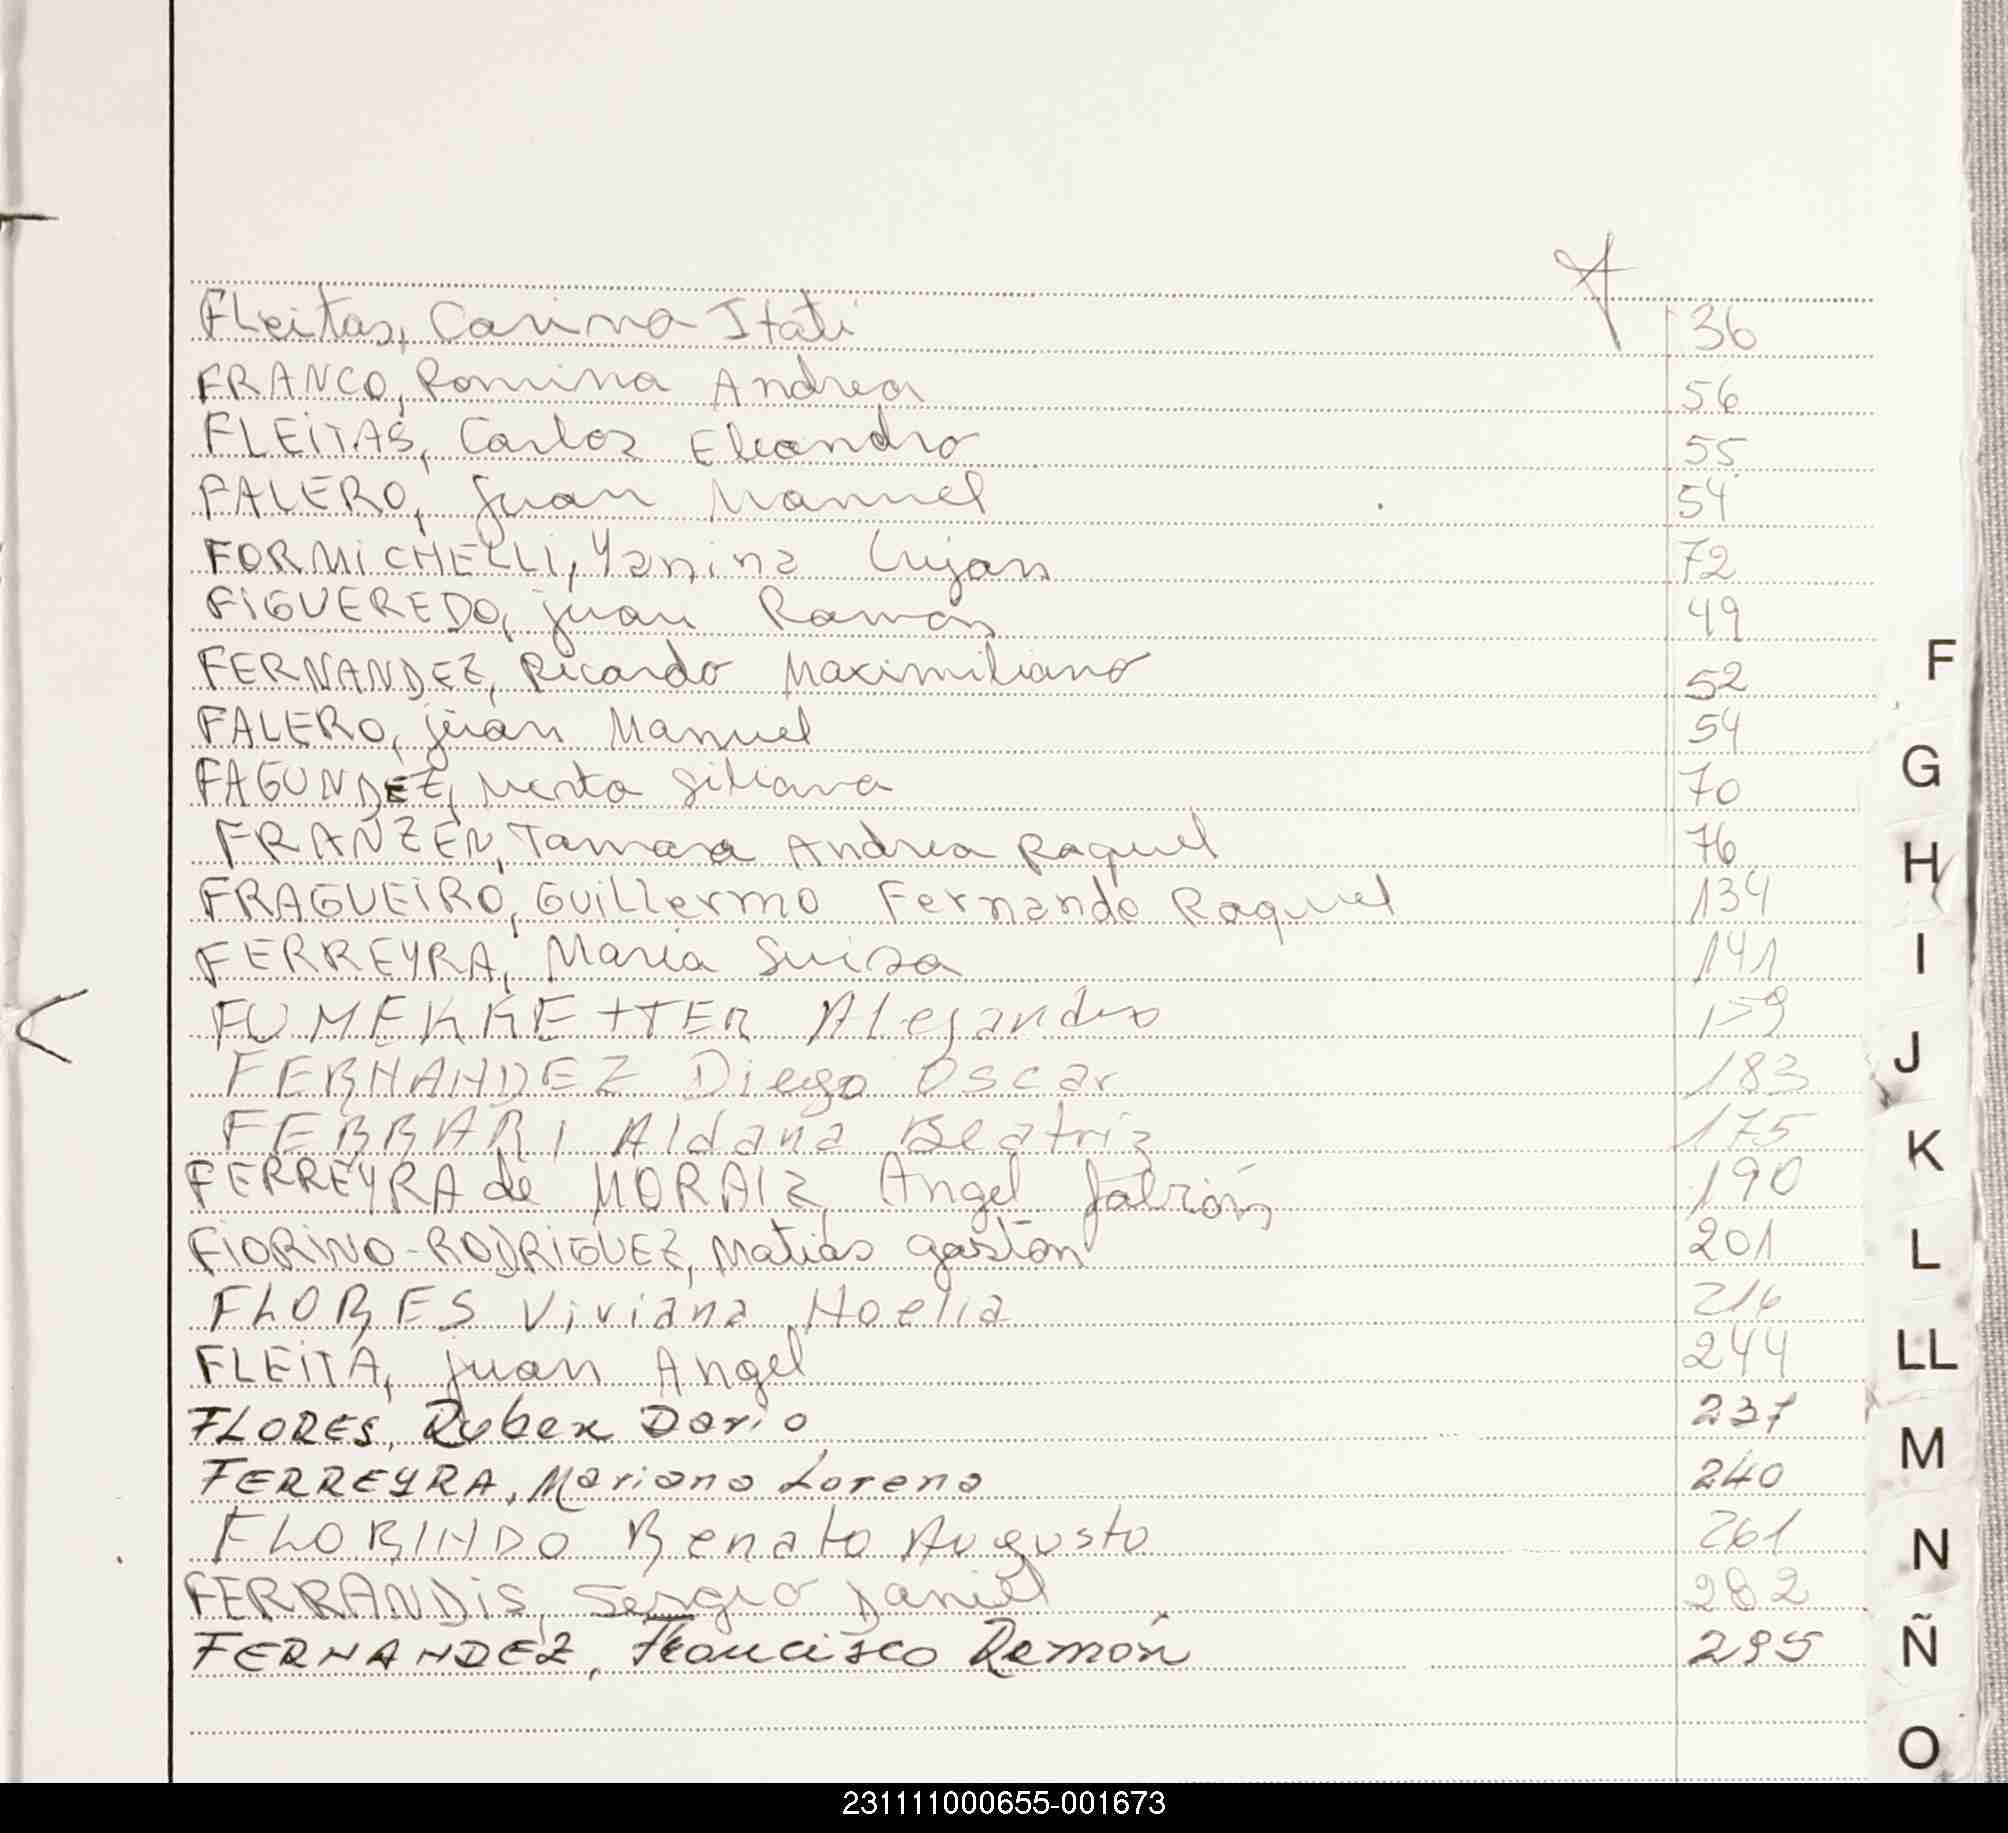 FLeitas, Carina Itati 36
FRANCO, Romina Andrea 56
FLEITAS, Carlos Eleandro 55
FALERO, Juan Manuel 54
FORMICHELLI, Yanina Lujan 72
FIGUEREDO, juan Ramon 49
FERNANDEZ, Ricardo Maximiliano 52
FALERO, juan Manuel 54
FAGUNDEZ, Mirta Liliana 70
FRANZEN, Tamara Andrea Raquel 76
FRAGUEIRO, Guillermo Fernando Raquel 134
FERREYRA, Maria Luisa 141
Alejandro 159
FERNANDEZ Diego Oscar 183
FERRARI Aldana Beatriz 175
FERREYRA de MORAIZ, Angel Fabrión 190
FIORINO-RODRIGUEZ, Matias gastón 201
FLORES Viviana Noelia 216
FLEITA, juan Angel 244
FLORES, Ruben Dario 237
FERREYRA, Mariana Lorena 240
FLORINDO Renato Augusto 261
FERRANDIS, Sergio Daniel 282
FERNANDEZ, Francisco Ramón 295
F
G
H
I
J
K
L
LL
M
N
Ñ
O
231111000655-001673